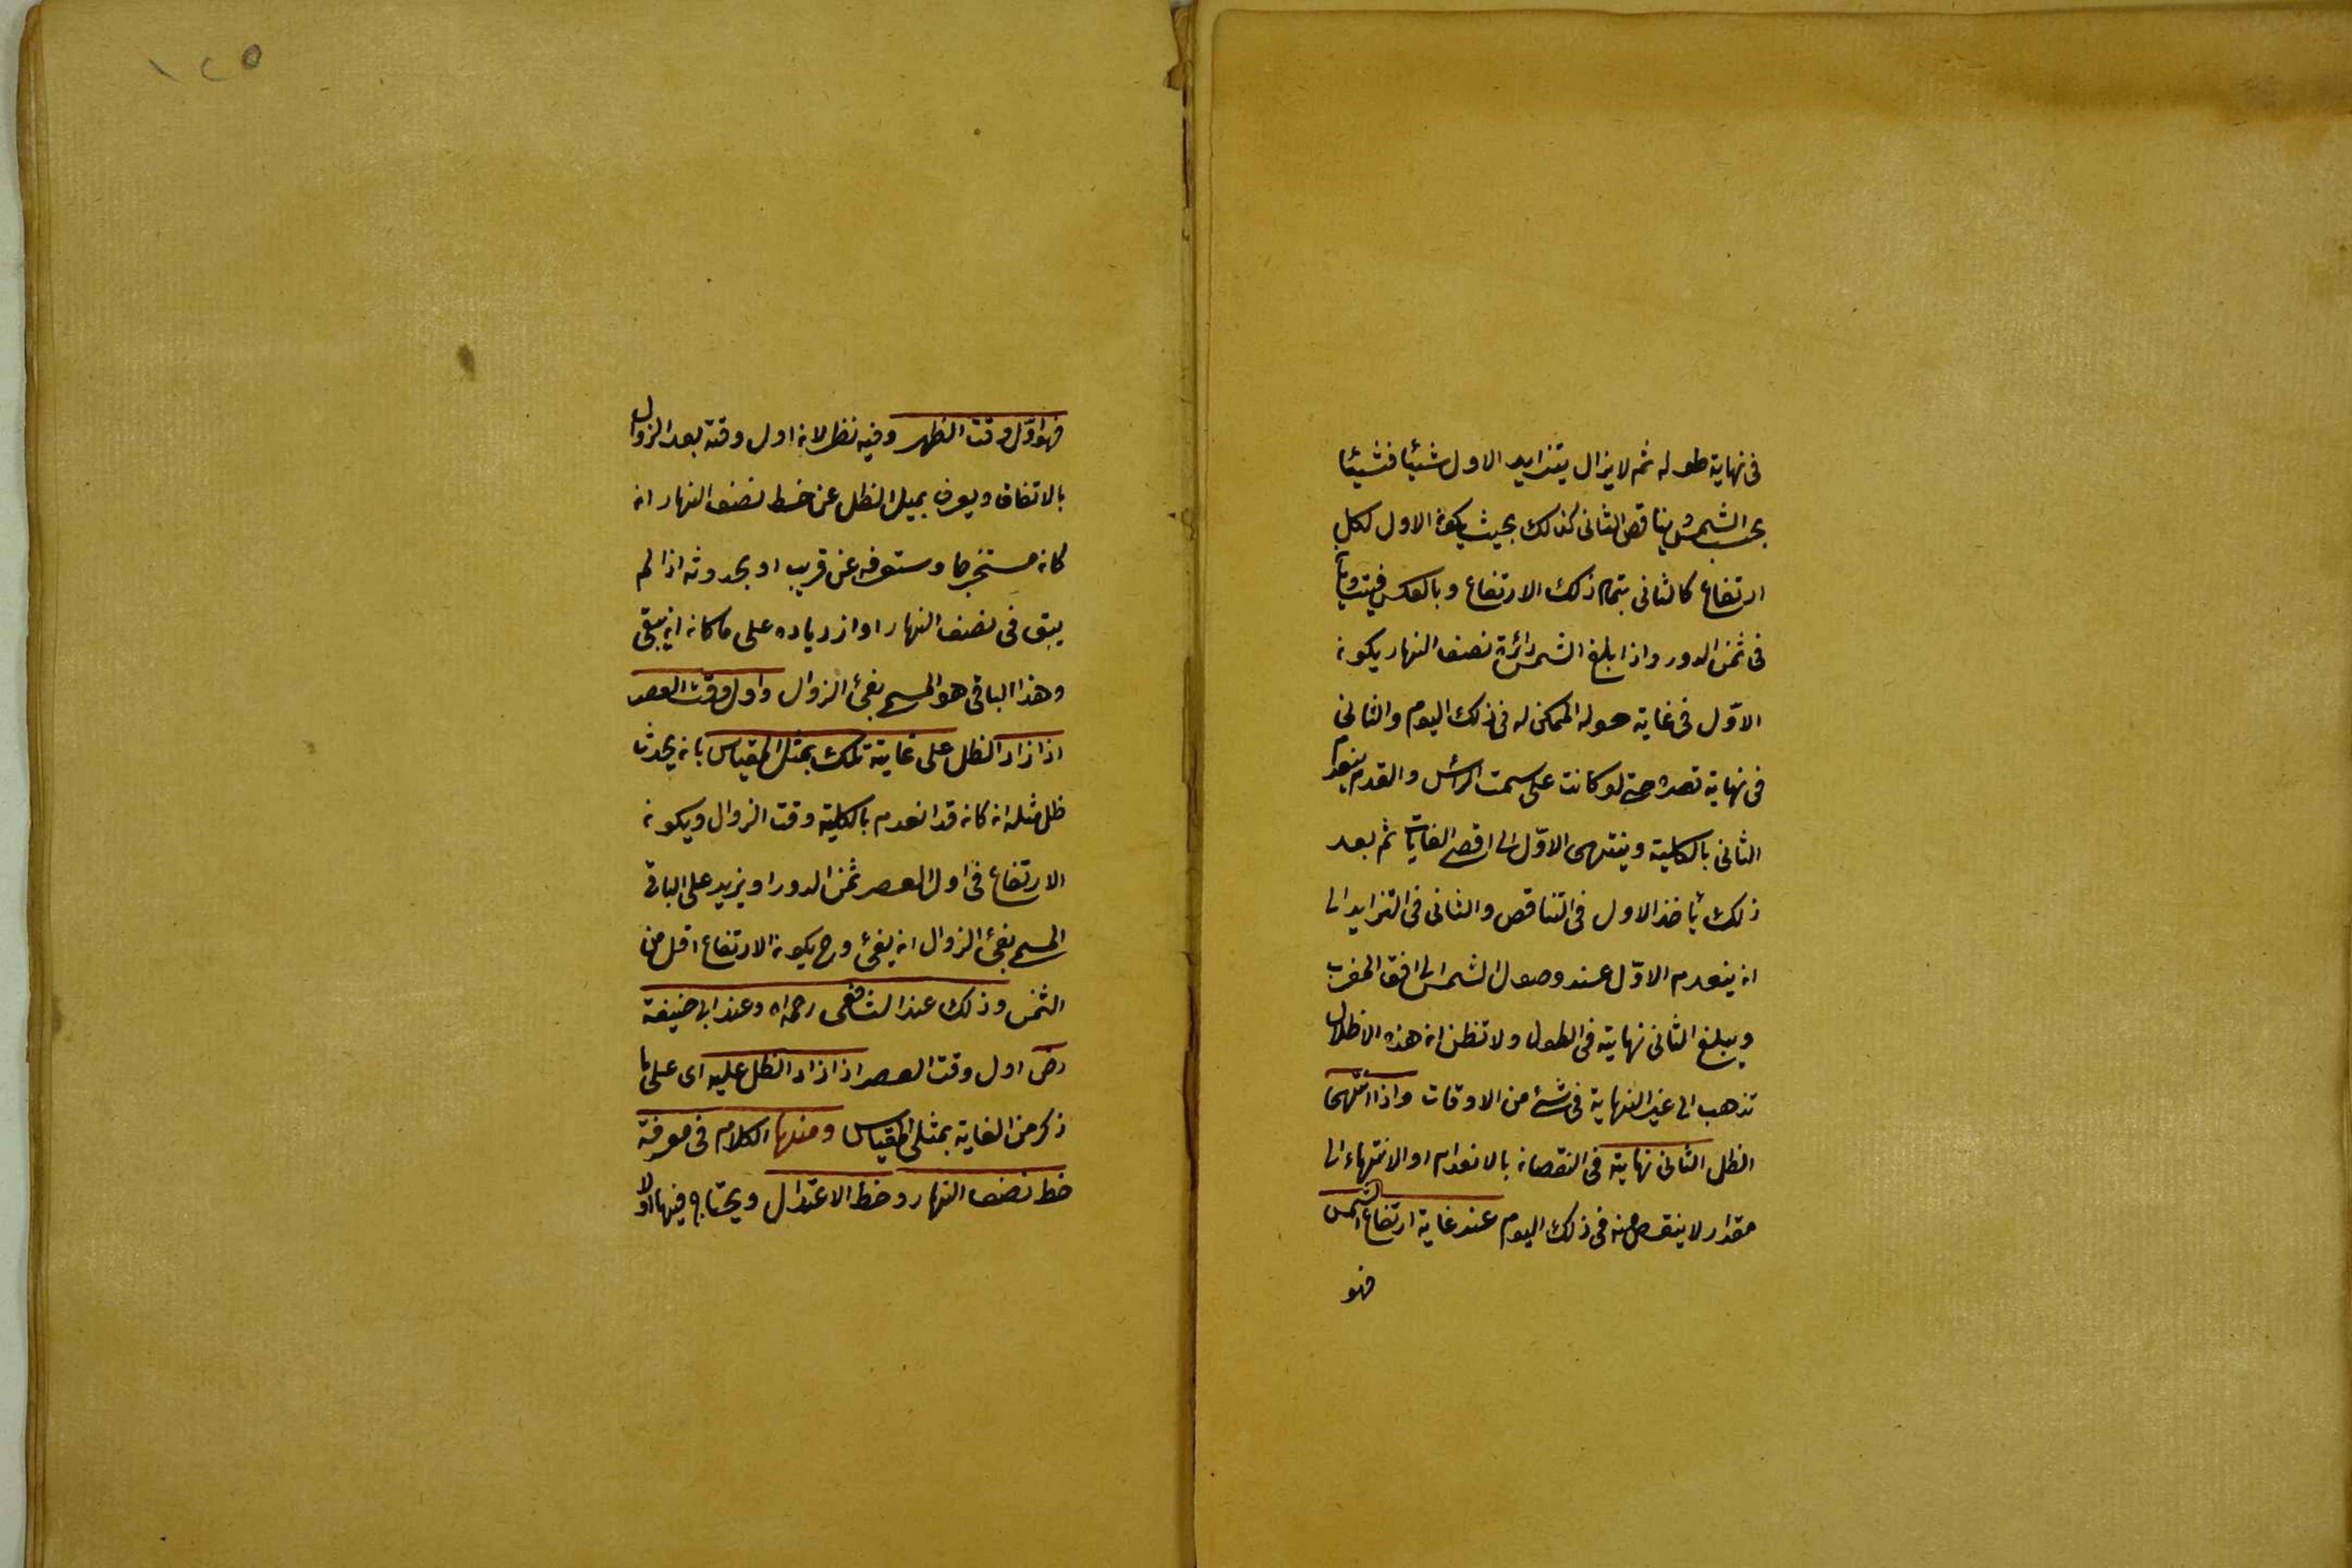 فى نهاية طوله ثم لا يزال يتزايد الاول شيئا فشيئا
بحسب الشمس ويتناقص الثانى كذلك بحيث يكون الاول لكل
ارتفاع كالثانى بتمام ذلك الارتفاع وبالعكس فيتساويان
فى ثمن الدور واذا بلغ الشمس دائرة نصف النهار يكون
الاوّل فى غاية طوله الممكن له فى ذلك اليوم والثانى
فى نهاية قصره حتى لو كانت على سمت الرأس والقدم ينعدم
الثانى بالكلية وينتهى الاوّل الى اقصى الغايات ثم بعد
ذلك ياخذ الاول فى التناقص والثانى فى التزايد الى
ان ينعدم الاوّل عند وصول الشمس الى افق المغرب
ويبلغ الثانى نهايته فى الطول ولا تظن ان هذه الاظلال
تذهب الى غير النهاية فى شئ من الاوقات واذا انتهى
الظل الثانى نهايته فى النقصان بالانعدام او الانتهاء الى
مقدار لا ينقص منه فى ذلك اليوم عند غاية ارتفاع الشمس
فهو
١٢٥
فهو اوّل وقت الظهر وفيه نظر لان اول وقته بعد الزوال
بالاتفاق ويعرف بميل الظل عن خط نصف النهار ان
كان مستخرجا وستعرفه عن قريب او بحدوثه اذا لم
يبق فى نصف النهار او ازدياده على ما كان ان بقى
وهذا الباقى هو المسمى بفئ الزوال واول وقت العصر
اذا زاد الظل على غايته تلك بمثل المقياس بان يحدث
ظل مثله ان كان قد انعدم بالكلية وقت الزوال ويكون
الارتفاع فى اول العصر ثمن الدور او يزيد على الباقى
المسمى بفئ الزوال ان بقى وح يكون الارتفاع اقل من
الثمن وذلك عند الشافعى رحمه الله وعند ابى حنيفة
رض اول وقت العصر اذا زاد الظل عليه اى على ما
ذكر من الغاية بمثلى المقياس ومنها الكلام فى معرفة
خط نصف النهار وخط الاعتدال ويحتاج فيها اولا